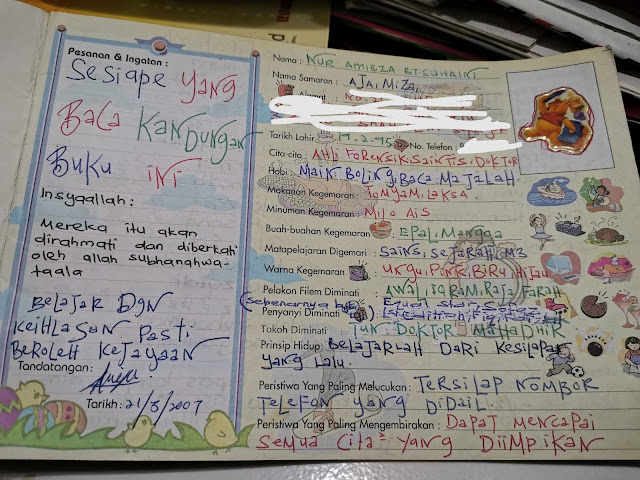 Pesanan & Ingatan :
Sesiape yang
Baca Kandungan
Buku ini
Insyaallah :
Mereka itu akan
dirahmati dan diberkati
oleh allah subhanahwa-
taala
Belajar Dgn
Keihlasan Pasti
Beroleh Kejayaan
Tandatangan:
Tarikh: 21/3/2007
Nama : Nur Amieza Bt. Suhaini
Nama Samaran :
Alamat :
Tarikh Lahir: 17-2-95 No. Telefon :
Cita-cita : Ahli Forensik, Saintis, Doktor
Hobi : Main Boling, Baca Majalah
Makanan Kegemaran : Tomyam, Laksa.
Minuman Kegemaran : Milo Ais
Buah-buahan Kegemaran : Epal, Mangga
Matapelajaran Digemari : Sains, Sejarah, M3
Warna Kegemaran : Ungu, Pink, Biru, Hijau
Pelakon Filem Diminati : Awal, Iqram, Raja Farah
(sebenarnya
Penyanyi Diminati :
Tokoh Diminati : Tun. Doktor Mahadhir
Prinsip Hidup: Belajarlah Dari Kesilapan
yang Lalu.
Peristiwa Yang Paling Melucukan : Tersilap Nombor
Telefon yang Didail.
Peristiwa Yang Paling Mengembirakan : Dapat Mencapai
Semua Cita² yang Diimpikan